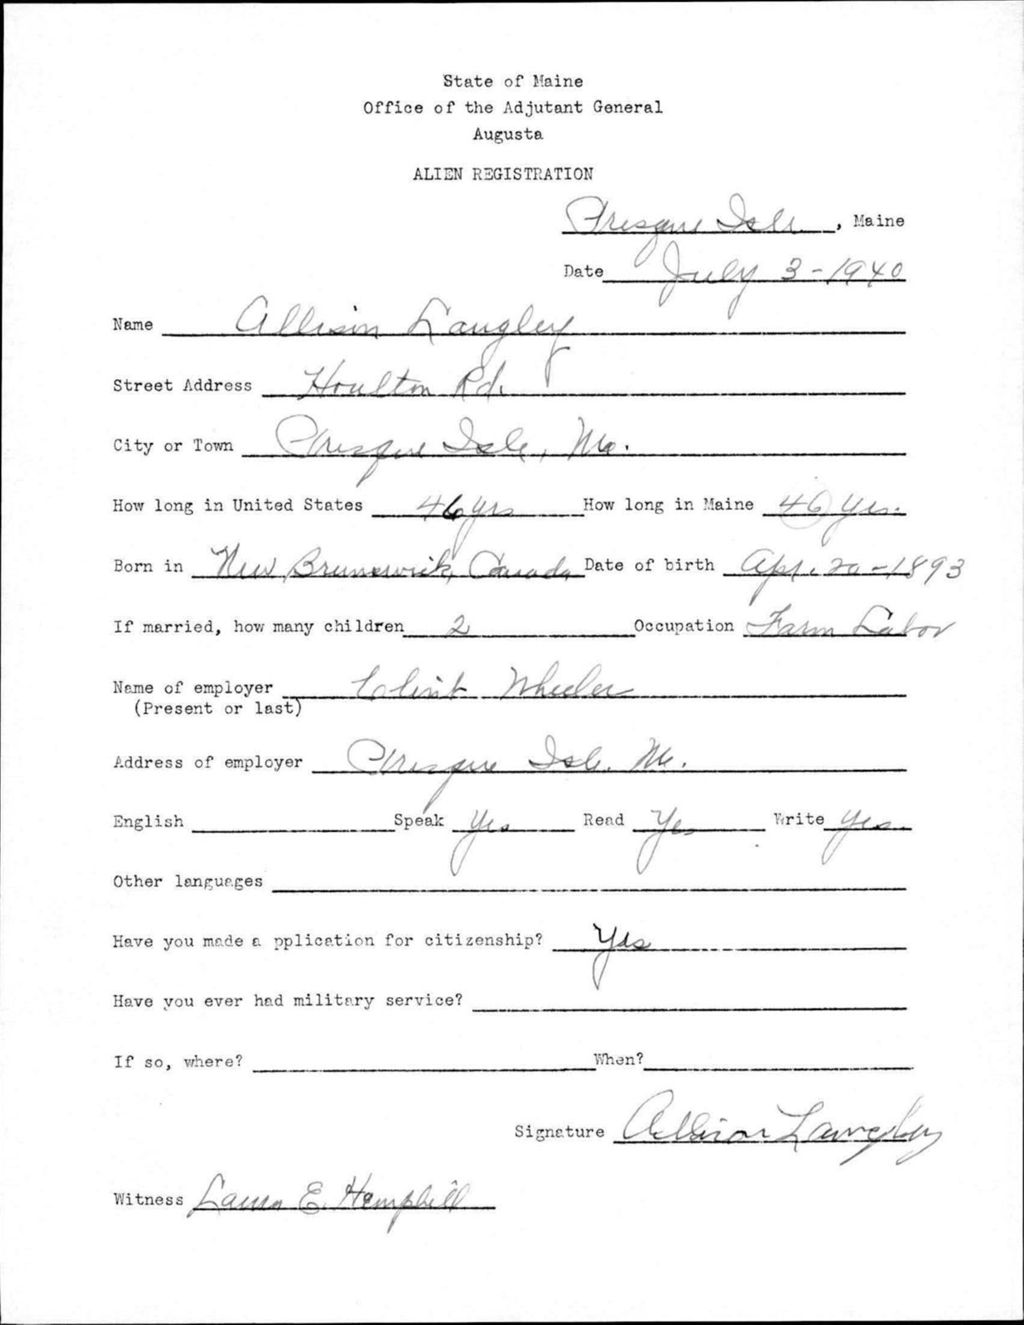 State of Maine
Office of the Adjutant General
Augusta
ALIEN REGISTRATION
Presque Isle, Maine
Date July 3-1940
Name Allison Langley
Street Address Houlton Rd.
City or Town Presque Isle, Me.
How long in United States 46 yrs How long in Maine 46 yrs.
Born in New Brunswick, Canada Date of birth Apr. 20-1893
If married, how many children 2 Occupation Farm Labor
Name of employer Clint Wheeler
(Present or last)
Address of employer Presque Isle. Me.
English Speak Yes Read Yes Write Yes.
Other languages
Have you made a pplication for citizenship? Yes
Have you ever had military service?
If so, where? When?
Signature Allison Langley
Witness Laura E. Hemphill